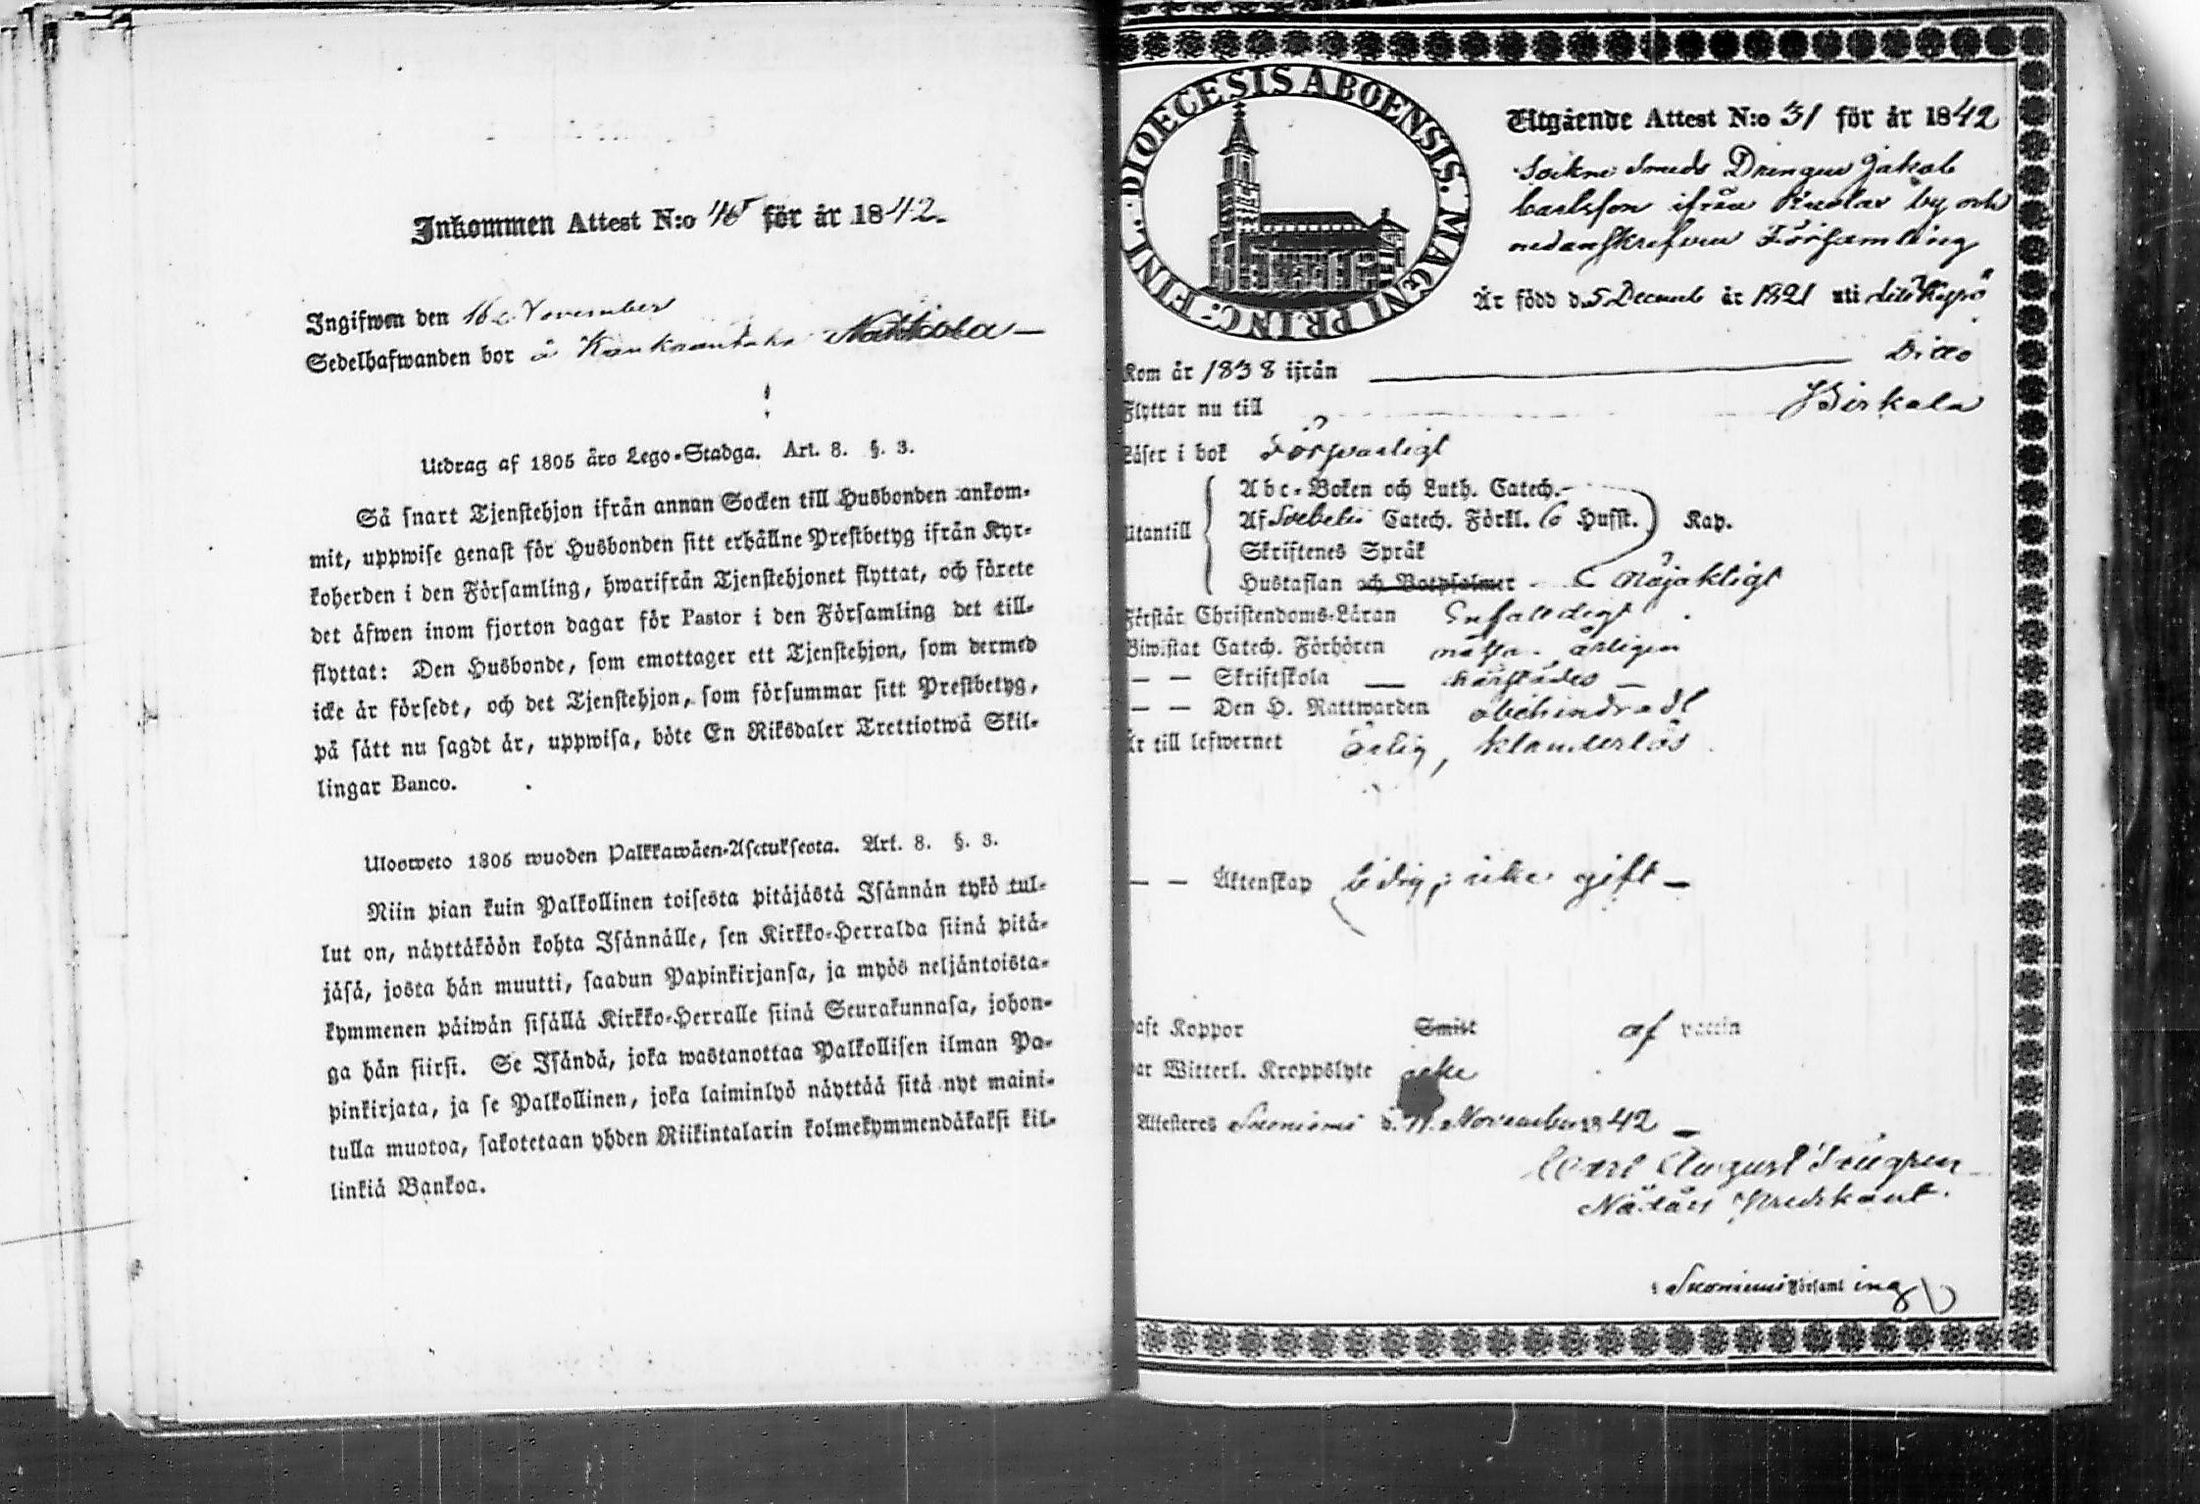 Inkommen Attest N:o 45 för år 1842.
Ingifwen den 16 November
Sedelhafwanden bor å Kankaantaka Nokkola
Utdrag af 1805 års Lego-Stadga. Art. 8. §. 3.
Så snart Tjenstehjon ifrån annan Socken till Husbonden ankom-
mit, uppwise genast för Husbonden sitt erhållne Prestbetyg ifrån Kyr-
koherden i den Församling, hwarifrån Tjenstehjonet flyttat, och förete
det åfwen inom fjorton dagar för Pastor i den Församling det till-
flyttat: Den Husbonde, som emottager ett Tjenstehjon, som dermed
icke är försedt, och det Tjenstehjon, som försummar sitt Prestbetyg,
på sätt nu sagdt är, uppwisa, böte En Riksdaler Trettiotwå Skil-
lingar Banco.
Ulosweto 1805 wuoden Palkkawäen-Asetuksesta. Art. 8. §. 3.
Niin pian kuin Palkollinen toisesta pitäjästä Isännän tykö tul-
lut on, näyttäköön kohta Isännälle, sen Kirkko-Herralda siinä pitä-
jäsä, josta hän muutti, saadun Papinkirjansa, ja myös neljäntoista-
kymmenen päiwän sisällä Kirkko-Herralle siinä Seurakunnasa, johon-
ga hän siirsi. Se Isändä, joka wastanottaa Palkollisen ilman Pa-
pinkirjata, ja se Palkollinen, joka laiminlyö näyttää sitä nyt maini-
tulla muotoa, sakotetaan yhden Riikintalarin kolmekymmendäkaksi kil-
linkiä Bankoa.
FINL. DIOECESIS ABOENSIS. MAGNI PRINC:
Utgående Attest N:o 31 för år 1842
Sockne Smeds Drengen Jakob
Carlsson ifrån Kuolas by och
nedanskrefven Församling
Är född d. 5 Decemb år 1821 uti
Kom år 1838 ifrån Ditto
Flyttar nu till Birkala
Läser i bok Försvarligt
Utantill
Abc-Boken och Luth. Catech.
Af Svebelii Catech. Förkl. Co Husst. Kap.
Skriftenes Språk
Hustaflan och Botpsalmer nöjaktligt
Förstår Christendoms-Läran Enfaldigt
Biwistat Catech. Förhören årligen
— — Skriftskola härstädes
— — Den H. Nattwarden obehindradt
Är till lefwernet ärlig, klanderlös
— — Äktenskap ledig; icke gift
haft Koppor Smitt af vaccin
har Witterl. Kroppslyte icke
Attesteras Suoniemi d. 11. November 1842
Carl August
Nådårs Predikant.
i Suoniemi Församling